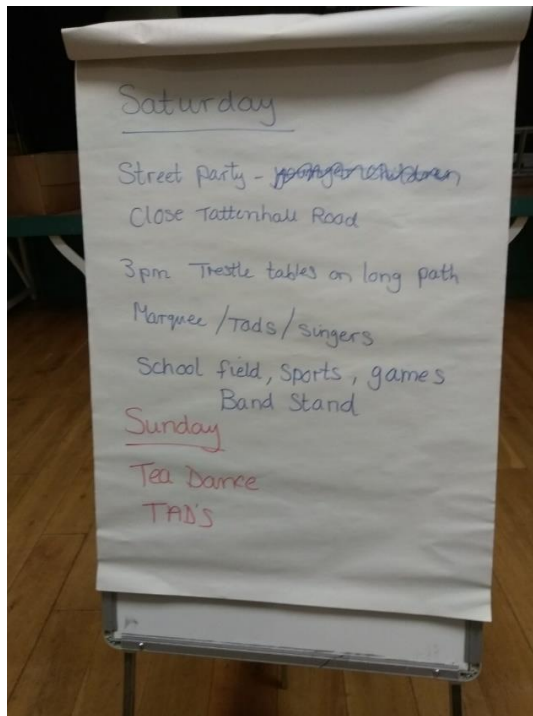 Saturday
Street party -
Close Tattenhall Road
3pm Trestle tables on long path
Marquee / Tads / singers
School field, sports, games
Band Stand
Sunday
Tea Dance
TAD'S